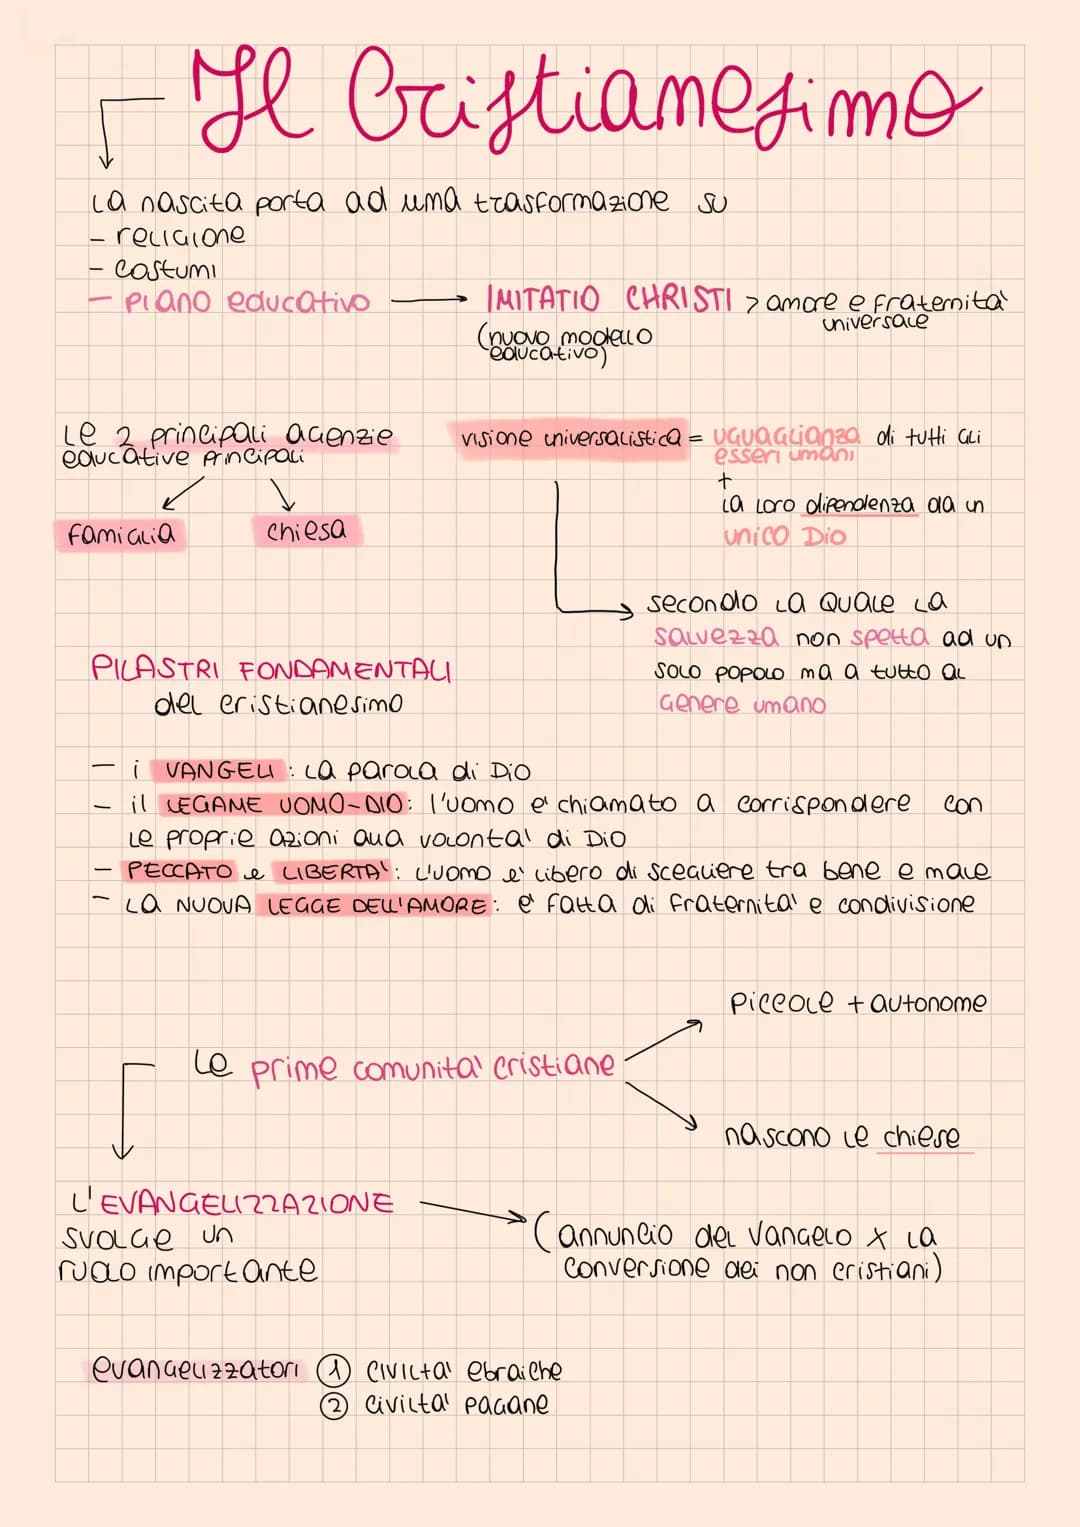 Il Cristianesimo
La nascita porta ad una trasformazione su
- religione
- costumi
- piano educativo → IMITATIO CHRISTI > amore e fraternita'
universale
(nuovo modello
educativo)
Le 2 principali agenzie
educative principali
famiglia
chiesa
visione universalistica = uguaglianza di tutti gli
esseri umani
+
la loro dipendenza da un
unico Dio
secondo la quale la
salvezza non spetta ad un
solo popolo ma a tutto al
genere umano
PILASTRI FONDAMENTALI
del cristianesimo
- i VANGELI: la parola di Dio
- il LEGAME UOMO-DIO: l'uomo e' chiamato a corrispondere con
le proprie azioni alla volonta' di Dio
- PECCATO e LIBERTA': l'uomo e' libero di scegliere tra bene e male
- LA NUOVA LEGGE DELL'AMORE: e' fatta di fraternita' e condivisione
piccole + autonome
Le prime comunita' cristiane
nascono le chiese
L'EVANGELIZZAZIONE
svolge un
ruolo importante
(annuncio del Vangelo x la
conversione dei non cristiani)
evangelizzatori ① civilta' ebraiche
② civilta' pagane